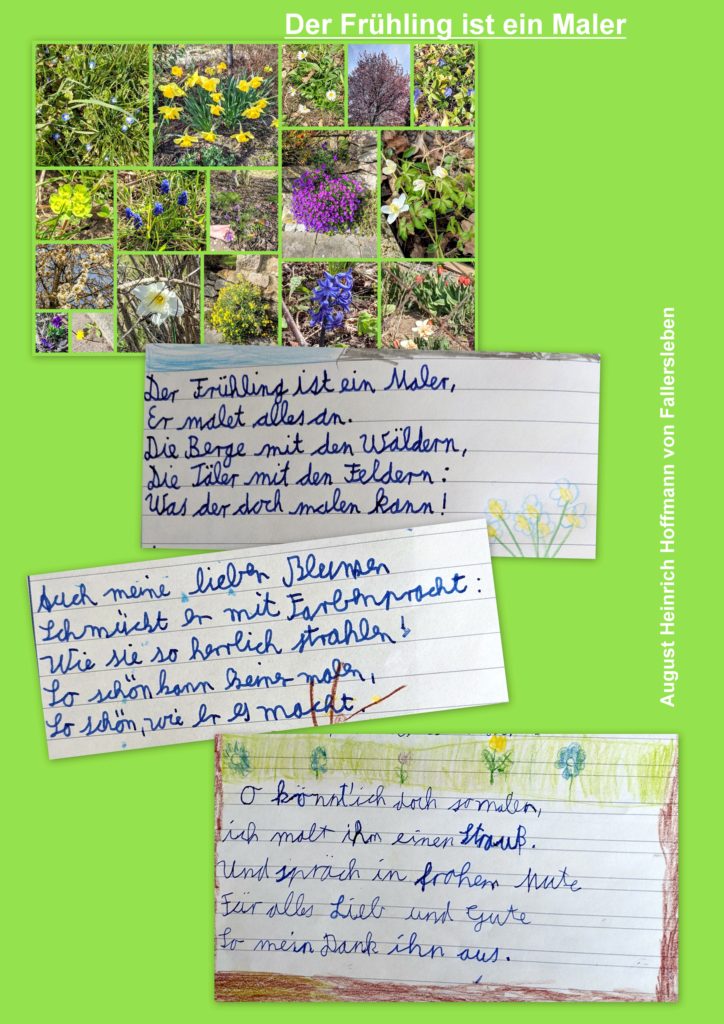 Der Frühling ist ein Maler
Der Frühling ist ein Maler,
Er malet alles an.
Die Berge mit den Wäldern,
Die Täler mit den Feldern:
Was der doch malen kann!
Auch meine lieben Blumen
Schmückt er mit Farbenpracht:
Wie sie so herrlich strahlen!
So schön kann keiner malen,
So schön, wie er es macht.
O könnt'ich doch so malen,
ich malt ihm einen Strauß.
Und spräch in frohem Mute
Für alles Lieb und Gute
So mein Dank ihn aus.
August Heinrich Hoffmann von Fallersleben